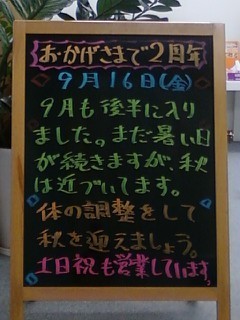 おかげさまで2周年
9月16日(金)
9月も後半に入り
ました。まだ暑い日
が続きますが、秋
は近づいてます。
体の調整をして
秋を迎えましょう。
土日祝も営業しています。